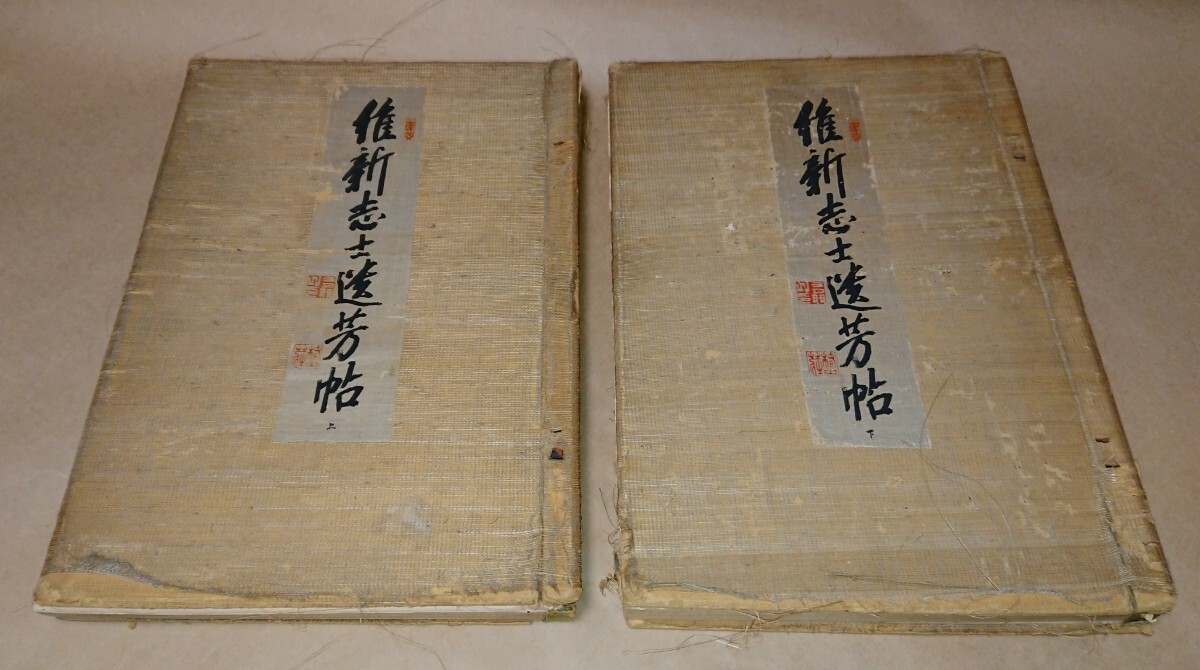 維新志士遺芳帖
上
維新志士遺芳帖
下